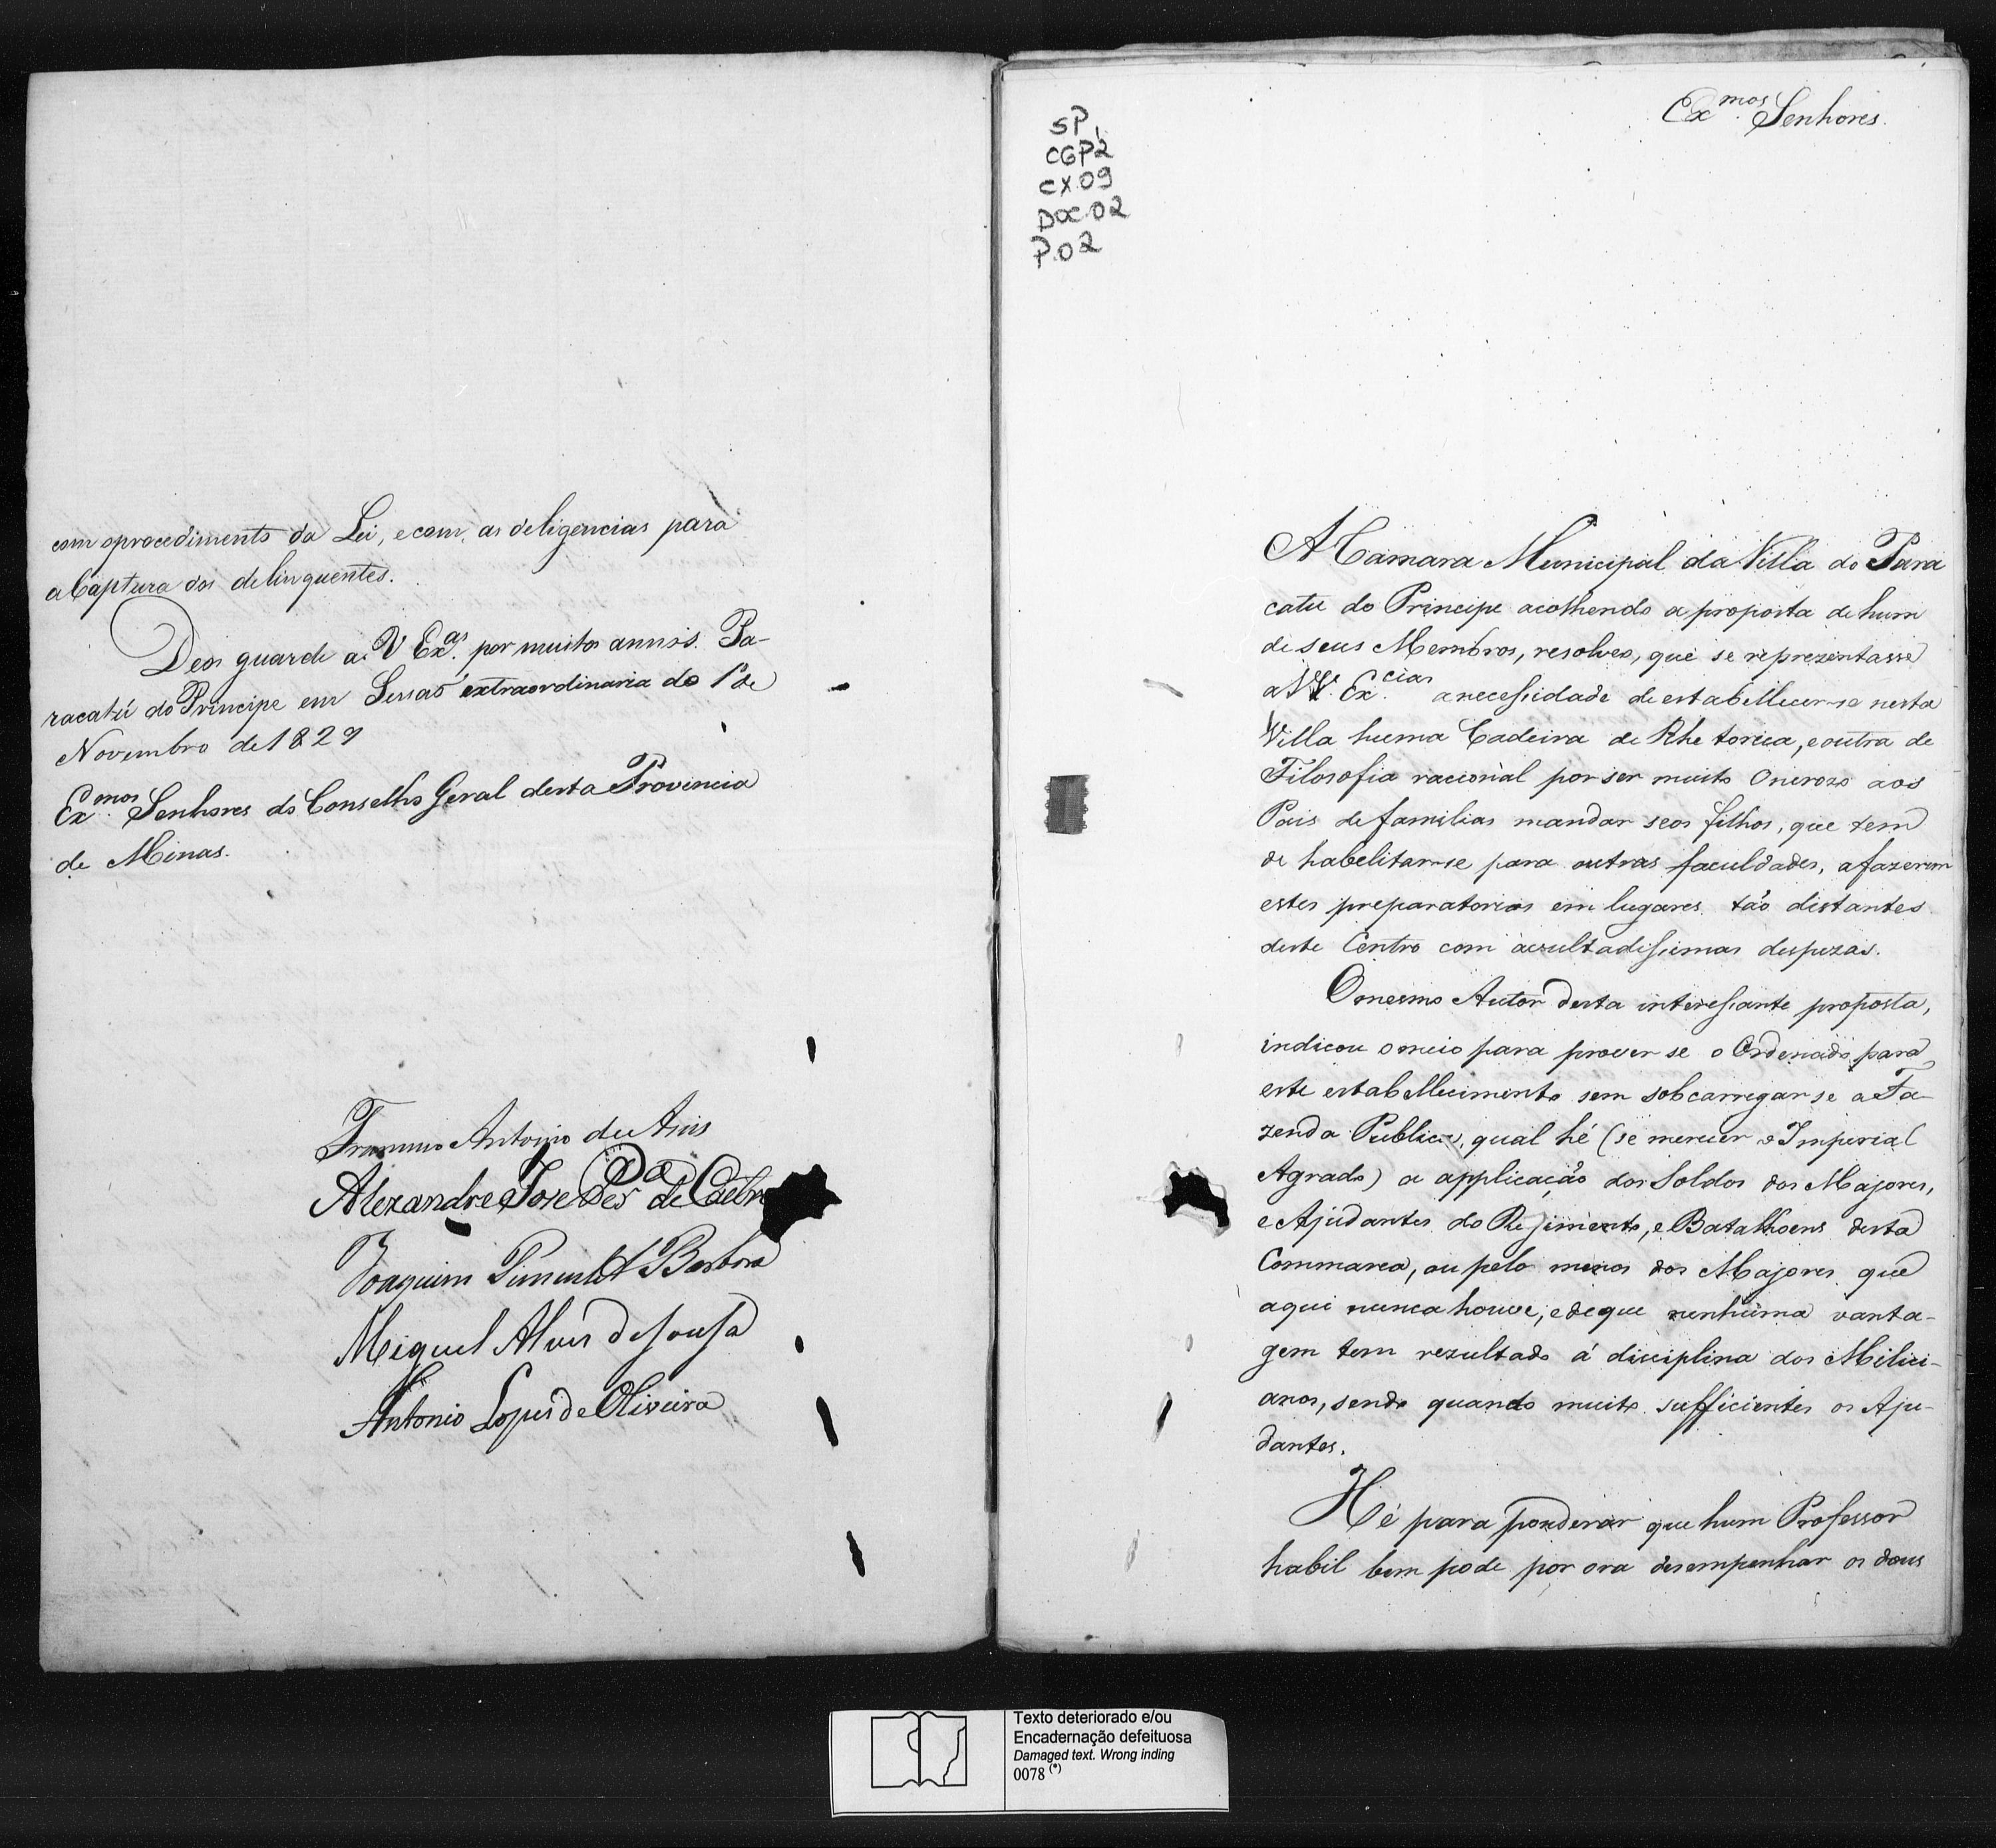 com oprocedimento da Lei, ecom, as deligencias para
a Captura dos delinquentes.
Deos guarde a V Ex.as por muitos annos. Pa-
racatú do Principe em Sessaõ extraordinaria do 1º de
Novembro de 1829
Ex.mos Senhores do Conselho Geral desta Provincia
de Minas.
Antonio de Assis
Alexandre Joze Per.a de
Joaquim Pimentel Barboza
Miguel Alves de Sousa
Antonio Lopes de Oliveira
SP
CGP2
CX.09
DOC.02
P.02
Ex.mos Senhores.
A Camara Municipal da Villa do Para
catu do Principe acolhendo a proposta de hum
de seus Membros, resolveo, que se reprezentasse
a VV. Ex.cias anecessidade de estabellecer-se nesta
Villa huma Cadeira de Rhetorica, eoutra de
Filosofia racional por ser muito Onerozo aos
Pais de familias mandar seos filhos, que tem
de habelitar-se para outras faculdades, afazerem
estes preparatorios em lugares tão distantes
deste Centro com avultadissimas despezas.
Omesmo Autor desta interessante proposta,
indicou omeio para prover se o Ordenado para
este estabellecimento sem sobcarregar se a Fa-
zenda Publica, qual hé (se merecer o Imperial
Agrado) a applicação dos Soldos dos Majores,
e Ajudantes do Regimento, e Batalhoens desta
Commarca, ou pelo menos dos Majores que
aqui nunca houve, edeque nenhuma vanta-
gem tem rezultado á disciplina dos Milici-
anos, sendo quando muito sufficientes os Aju-
dantes.
Hé para ponderar que hum Professor
habil bem pode por ora desempenhar os dous
Texto deteriorado e/ou
Encadernação defeituosa
Damaged text. Wrong inding
0078 (*)